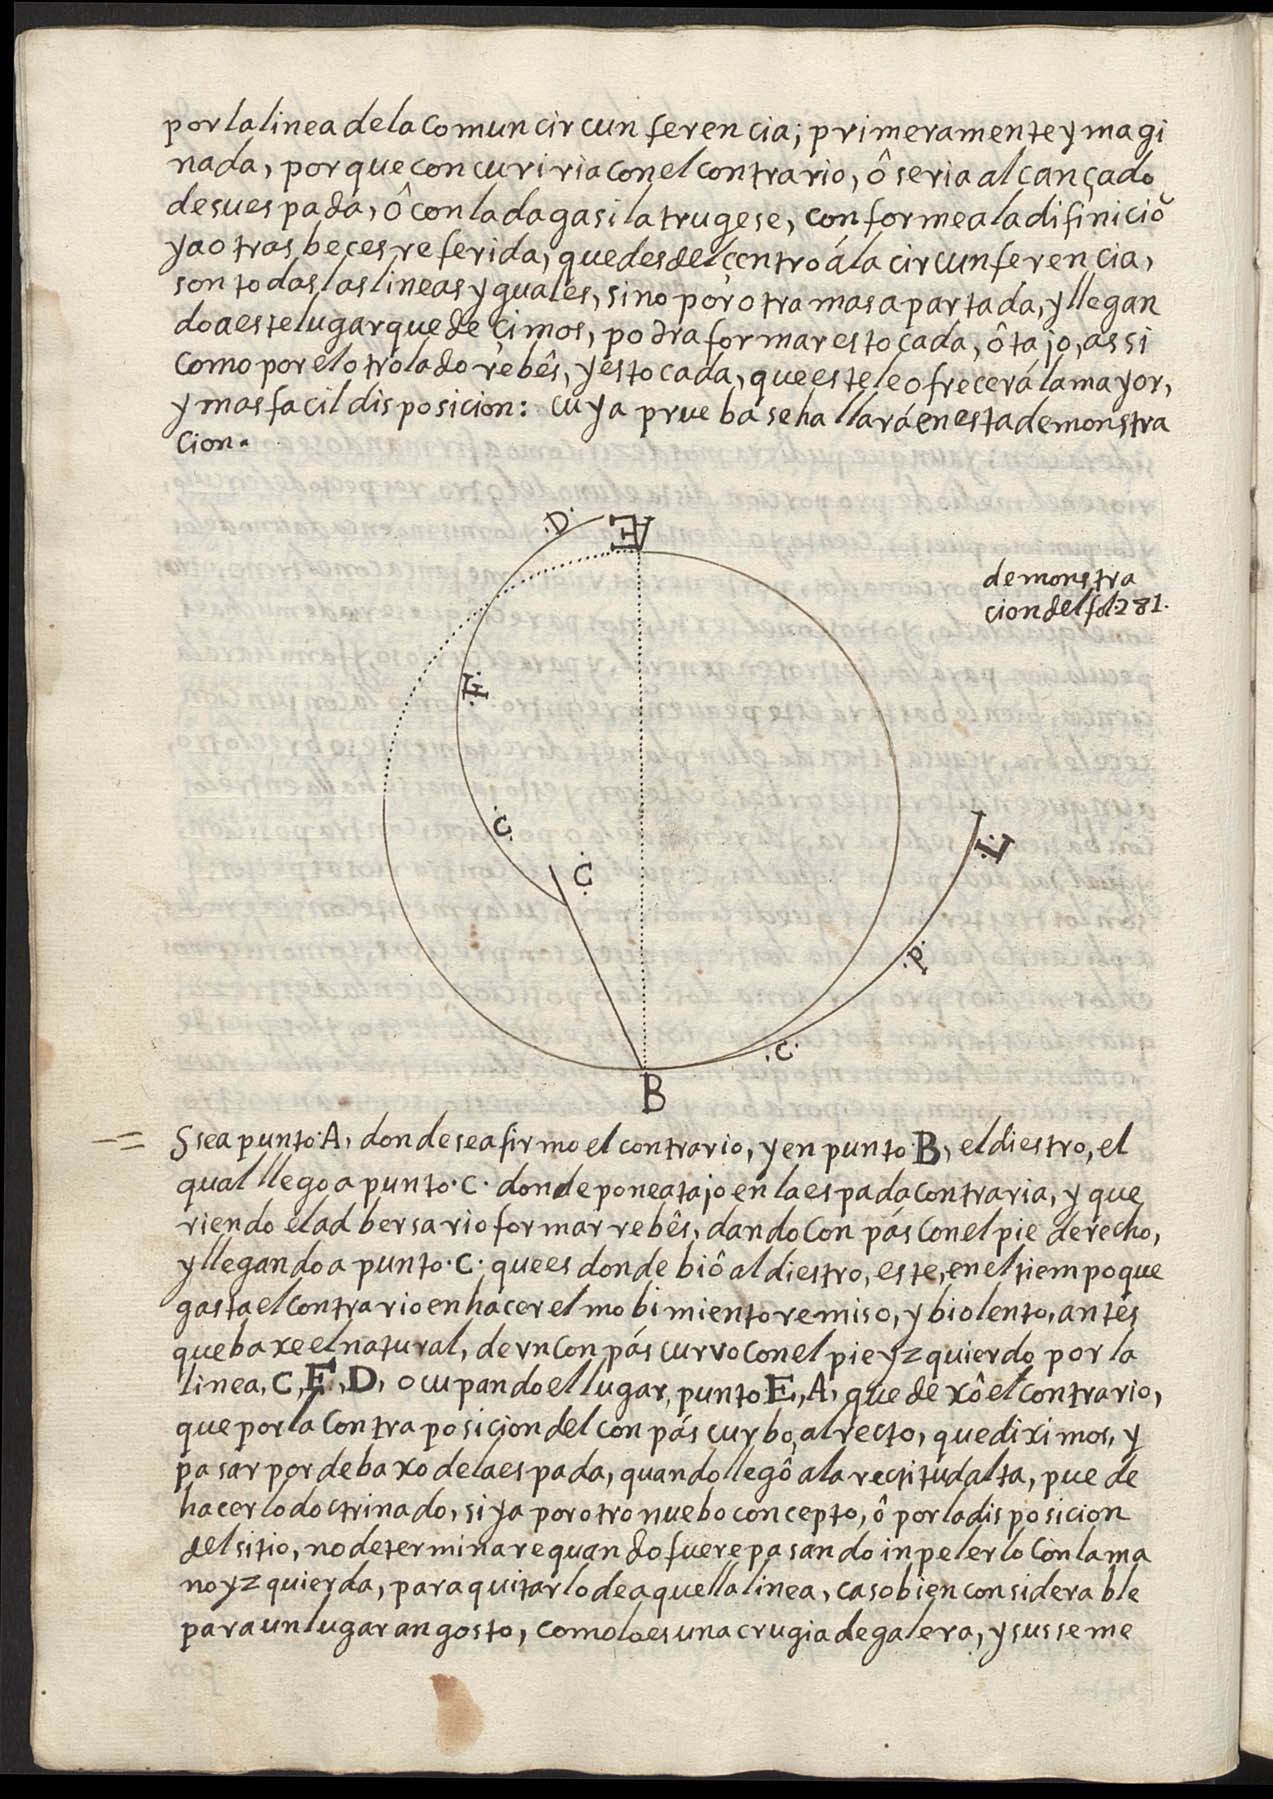 por la linea de la comun circunferencia; primeramente ymagi
nada, porque concuriria con el contrario, ô seria alcançado
de su espada, ô con la daga si la trugese, conforme a la difiniciõ
ya otras beces referida, que desdel çentro á la circunferencia,
son todas las lineas yguales, sino por otra mas apartada, y llegan
do a este lugar que deçimos, podra formar estocada, ô tajo, assi
como por el otro lado rebês, y estocada, que este le ofrecerá la mayor,
y mas facil disposicion: cuya prueba se hallará en esta demonstra
cion.
.D.
Æ
demonstra
cion del fol. 281.
.F.
.C.
.C.
.L.
.P.
.C.
B
Ssea punto A, donde se afirmo el contrario, y en punto B, el diestro, el
qual llego a punto .C. donde pone atajo en la espada contraria, y que
riendo el adbersario formar rebês, dando conpás con el pie derecho,
y llegando a punto .C. que es donde biô al diestro, este, en el tiempo que
gasta el contrario en hacer el mobimiento remiso, y biolento, antes
que baxe el natural, de vn conpás curvo con el pie yzquierdo por la
linea, C, F, D, ocupando el lugar, punto E, A, que dexô el contrario,
que por la contraposicion del conpás curbo, al recto, que diximos, y
pasar por debaxo de la espada, quando llegô a la rectitud alta, puede
hacer lo doctrinado, si ya por otro nuebo concepto, ô por la disposicion
del sitio, no determinare quando fuere pasando inpelerlo con la ma
no yzquierda, para quitarlo de aquella linea, caso bien considerable
para un lugar angosto, como lo es una crugia de galera, y sus seme